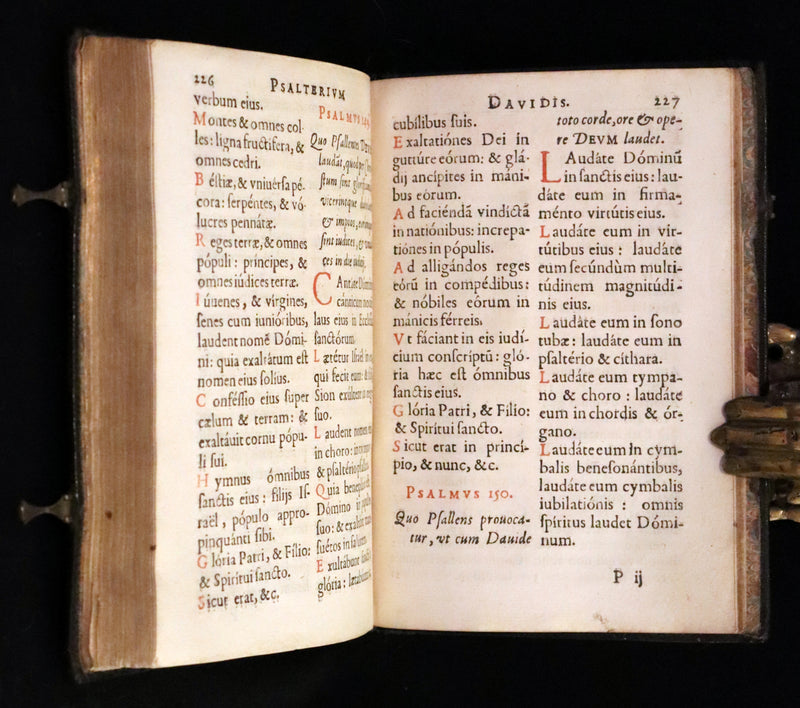 226 PSALTERIVM
verbum eius.
Montes & omnes col-
les: ligna fructifera, &
omnes cedri.
Béſtiæ, & vniuérſa pé-
cora: ſerpéntes, & vó-
lucres pennátæ.
Reges terræ, & omnes
pópuli: príncipes, &
omnes iúdices terræ.
Iúuenes, & vírgines,
ſenes cum iunióribus,
laudent nomē Dómi-
ni: quia exaltátum eſt
nomen eius ſolíus.
Conféſſio eius ſuper
cælum & terram: &
exaltáuit cornu pópu-
li ſui.
Hymnus ómnibus
ſanctis eius: filijs Iſ-
raël, pópulo appro-
pinquánti ſibi.
Glória Patri, & Fílio:
& Spirítui ſancto.
Sicut erat, &c.
PSALMVS
Quo Pſallens
ſtum ſint
vicerintque
& impios,
ſint iudices, &
ces in die
CAntáte
cánticum
laus eius in
ſanctórum.
Lætétur Iſraël in
qui fecit eum: &
Sion
ſuo.
Laudent nomen
in choro:
& pſaltério
Quia
Dómino in
ſuo: &
ſuétos in
Exultábunt
glória:
DAVIDIS. 227
cubílibus ſuis.
Exaltatiónes Dei in
gutture eórum: & glá-
dij ancípites in máni-
bus eórum.
Ad faciéndā vindíctā
in natiónibus: increpa-
tiónes in pópulis.
Ad alligándos reges
eórū in compédibus:
& nóbiles eórum in
mánicis férreis.
Vt fáciant in eis iudí-
cium conſcríptū: gló-
ria hæc eſt ómnibus
ſanctis eius.
Glória Patri, & Fílio:
& Spirítui ſancto.
Sicut erat in princí-
pio, & nunc, &c.
PSALMVS 150.
Quo Pſallens prouoca-
tur, vt cum Dauide
toto corde, ore & ope-
re DEVM laudet.
LAudáte Dóminū
in ſanctis eius: lau-
dáte eum in firma-
ménto virtútis eius.
Laudáte eum in vir-
tútibus eius: laudáte
eum ſecúndùm multi-
túdinem magnitúdi-
nis eius.
Laudáte eum in ſono
tubæ: laudáte eum in
pſaltério & cíthara.
Laudáte eum tympa-
no & choro: laudáte
eum in chordis & ór-
gano.
Laudáte eum in cym-
balis beneſonántibus,
laudáte eum cymbalis
iubilatiónis: omnis
ſpíritus laudet Dómi-
num.
P ij